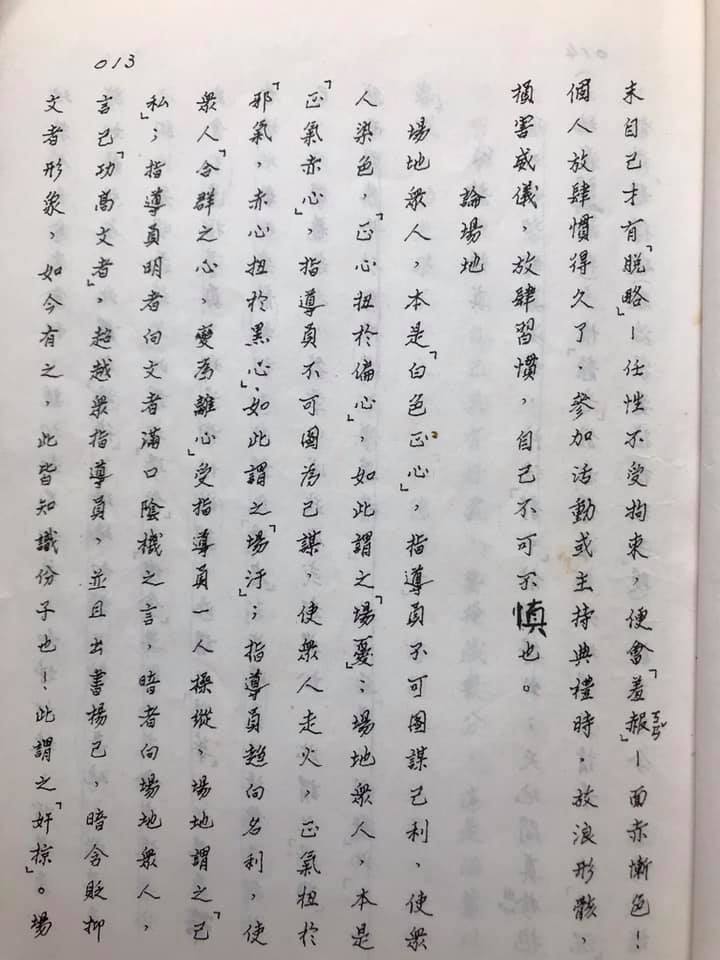 013
末自己才有「脫略」—任性不受拘束，便會「羞赧ㄋㄢˇ」—面赤慚色！
個人放肆慣得久了，參加活動或主持典禮時，放浪形骸，
損害威儀，放肆習慣，自己不可不慎也。
論場地
場地眾人，本是「白色正心」，指導員不可圖謀己利，使眾
人染色，「正心扭於偏心」，如此謂之「場憂」；場地眾人，本是
「正氣赤心」，指導員不可圖為己謀，使眾人走火，正氣扭於
「邪氣，赤心扭於黑心」，如此謂之「場汙」；指導員趨向名利，使
眾人「合群之心，變為離心」受指導員一人操縱，場地謂之「己
私」；指導員明者向文者滿口陰機之言，暗者向場地眾人，
言己「功高文者」，超越眾指導員，並且出書揚己，暗含貶抑
文者形象，如今有之，此皆知識份子也！此謂之「奸掠」。場